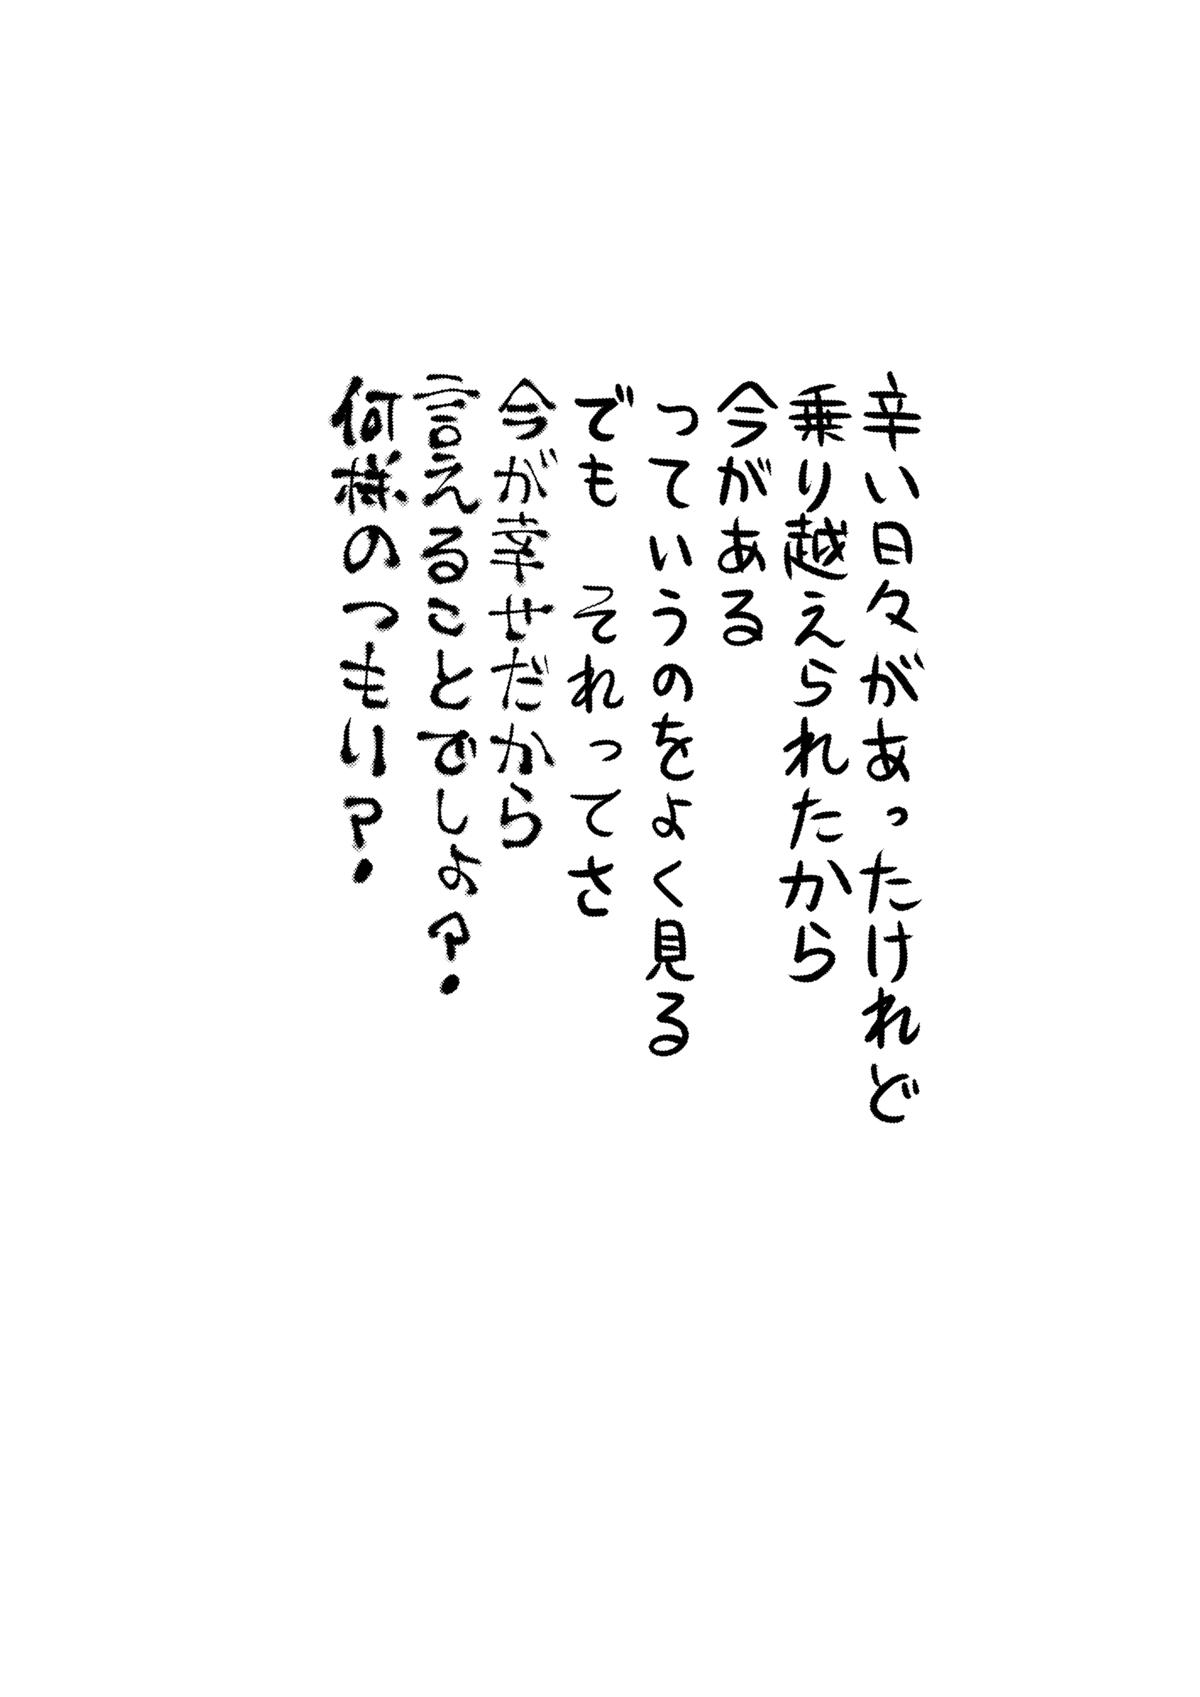 辛い日々があったけれど
乗り越えられたから
今がある
っていうのをよく見る
でも　それってさ
今が幸せだから
言えることでしょ？
何様のつもり？